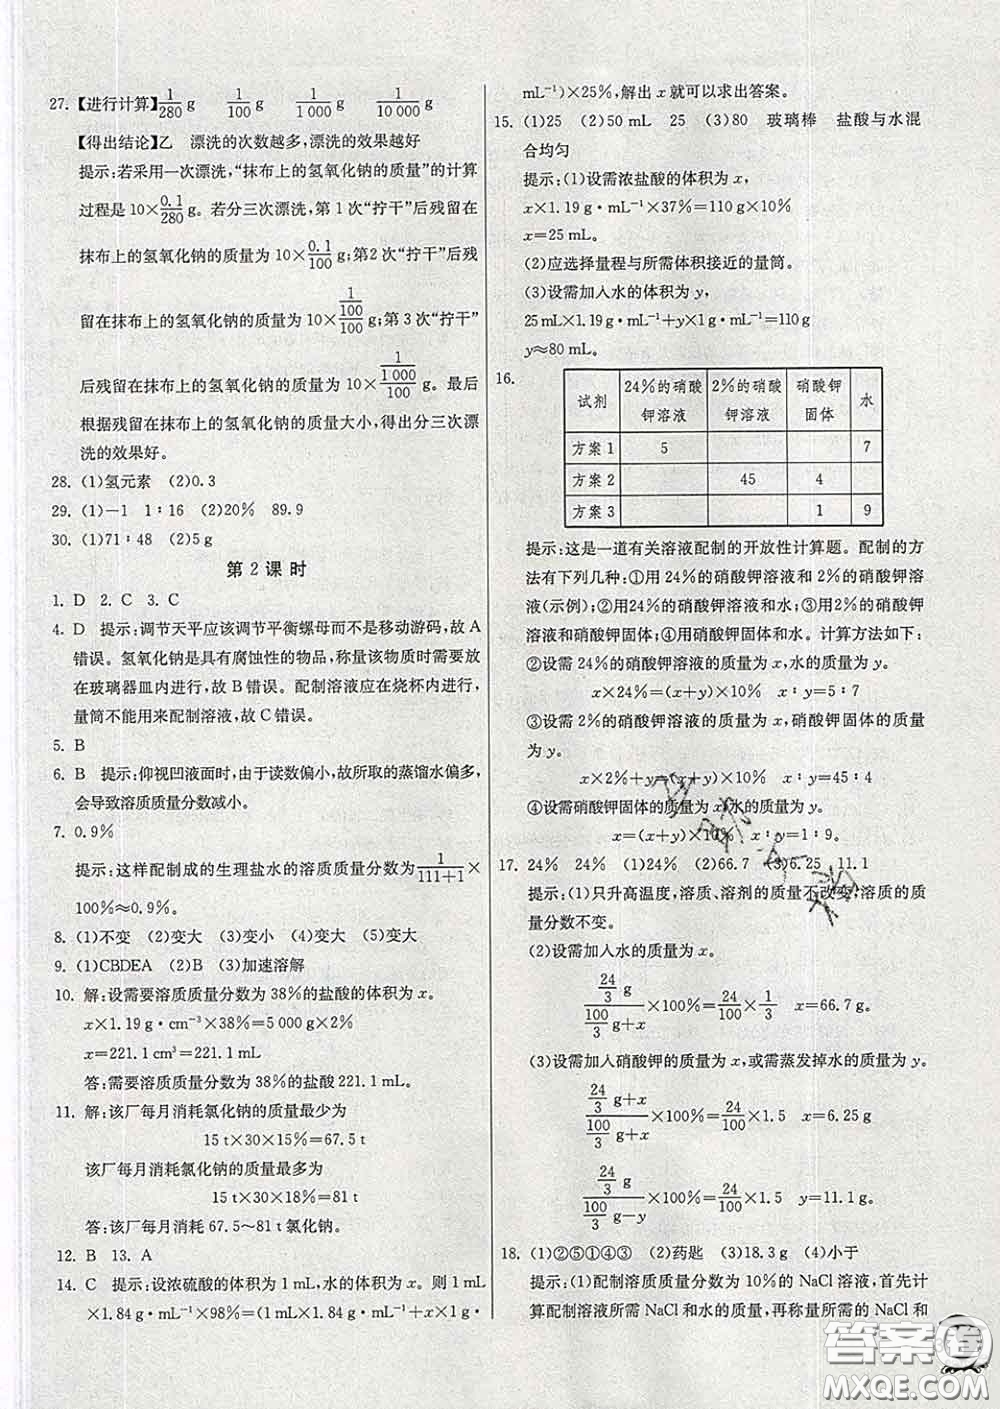 27. 【进行计算】1/280 g  1/100 g  1/1 000 g  1/10 000 g
【得出结论】乙  漂洗的次数越多,漂洗的效果越好
提示:若采用一次漂洗,“抹布上的氢氧化钠的质量”的计算
过程是 10×0.1/280 g。若分三次漂洗,第 1 次“拧干”后残留在
抹布上的氢氧化钠的质量为 10×0.1/100 g;第2 次“拧干”后残
留在抹布上的氢氧化钠的质量为 10×(1/100)/100 g;第 3 次“拧干”
后残留在抹布上的氢氧化钠的质量为 10×(1/1 000)/100 g。最后
根据残留在抹布上的氢氧化钠的质量大小,得出分三次漂
洗的效果好。
28. (1)氢元素  (2)0.3
29. (1)-1  1∶16  (2)20%  89.9
30. (1)71∶48  (2)5 g
第 2 课 时
1. D  2. C  3. C
4. D  提示:调节天平应该调节平衡螺母而不是移动游码,故 A
错误。氢氧化钠是具有腐蚀性的物品,称量该物质时需要放
在玻璃器皿内进行,故 B 错误。配制溶液应在烧杯内进行,
量筒不能用来配制溶液,故 C 错误。
5. B
6. B  提示:仰视凹液面时,由于读数偏小,故所取的蒸馏水偏多,
会导致溶质质量分数减小。
7. 0.9%
提示:这样配制成的生理盐水的溶质质量分数为 1/(111+1)×
100%≈0.9%。
8. (1)不变  (2)变大  (3)变小  (4)变大  (5)变大
9. (1)CBDEA  (2)B  (3)加速溶解
10. 解:设需要溶质质量分数为 38%的盐酸的体积为 x。
x×1.19 g·cm⁻³×38%=5 000 g×2%
x=221.1 cm³=221.1 mL
答:需要溶质质量分数为 38%的盐酸 221.1 mL。
11. 解:该厂每月消耗氯化钠的质量最少为
15 t×30×15%=67.5 t
该厂每月消耗氯化钠的质量最多为
15 t×30×18%=81 t
答:该厂每月消耗 67.5~81 t 氯化钠。
12. B  13. A
14. C  提示:设浓硫酸的体积为 1 mL,水的体积为 x。则 1 mL
×1.84 g·mL⁻¹×98%=(1 mL×1.84 g·mL⁻¹+x×1 g·
mL⁻¹)×25%,解出 x 就可以求出答案。
15. (1)25  (2)50 mL  25  (3)80  玻璃棒  盐酸与水混
合均匀
提示:(1)设需浓盐酸的体积为 x,
x×1.19 g·mL⁻¹×37%=110 g×10%
x=25 mL。
(2)应选择量程与所需体积接近的量筒。
(3)设需加入水的体积为 y,
25 mL×1.19 g·mL⁻¹+y×1 g·mL⁻¹=110 g
y≈80 mL。
16.
试剂  24%的硝酸钾溶液  2%的硝酸钾溶液  硝酸钾固体  水
方案 1  5  7
方案 2  45  4
方案 3  1  9
提示:这是一道有关溶液配制的开放性计算题。配制的方
法有下列几种:①用 24%的硝酸钾溶液和 2%的硝酸钾溶
液(示例);②用24%的硝酸钾溶液和水;③用 2%的硝酸钾
溶液和硝酸钾固体;④用硝酸钾固体和水。计算方法如下:
②设需 24%的硝酸钾溶液的质量为 x,水的质量为 y。
x×24%=(x+y)×10%  x∶y=5∶7
③设需 2%的硝酸钾溶液的质量为 x,硝酸钾固体的质量
为 y。
x×2%+y=(x+y)×10%  x∶y=45∶4
④设需硝酸钾固体的质量为 x,水的质量为 y。
x=(x+y)×10%  x∶y=1∶9。
17. 24%  24%  (1)24%  (2)66.7  (3)6.25  11.1
提示:(1)只升高温度,溶质、溶剂的质量不改变,溶质的质
量分数不变。
(2)设需加入水的质量为 x。
(24/3 g)/(100/3 g+x)×100%=24/100×1/3  x=66.7 g。
(3)设需加入硝酸钾的质量为 x,或需蒸发掉水的质量为 y。
(24/3 g+x)/(100/3 g+x)×100%=24/100×1.5  x=6.25 g
(24/3 g)/(100/3 g-y)×100%=24/100×1.5  y=11.1 g。
18. (1)②⑤①④③  (2)药匙  (3)18.3 g  (4)小于
提示:(1)配制溶质质量分数为 10%的 NaCl 溶液,首先计
算配制溶液所需 NaCl 和水的质量,再称量所需的 NaCl 和
答案圈
MXQE.COM